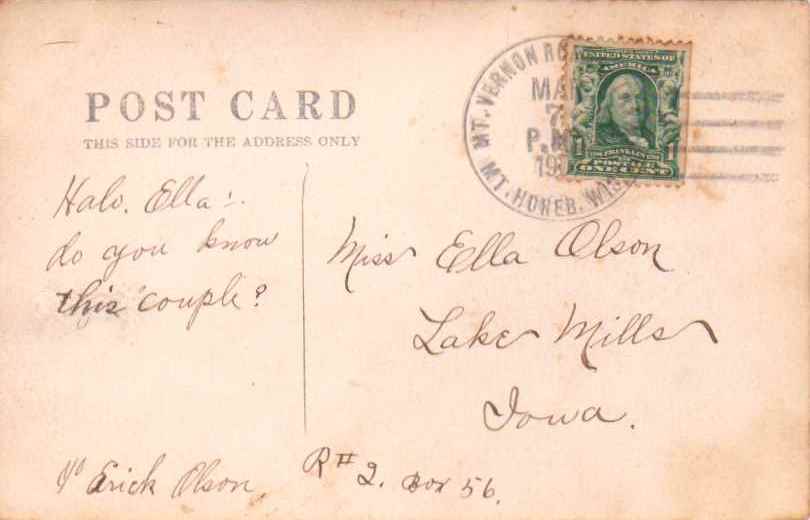 POST CARD
THIS SIDE FOR THE ADDRESS ONLY
MT. VERNON
MT. HOREB. WIS
P.M
UNITED STATES OF
AMERICA
1 1
POSTAGE
ONE CENT
Halo. Ella!.
do you know
this couple?
Miss Ella Olson
Lake Mills
Iowa.
c/o Erick Olson,
R # 2. Box 56.